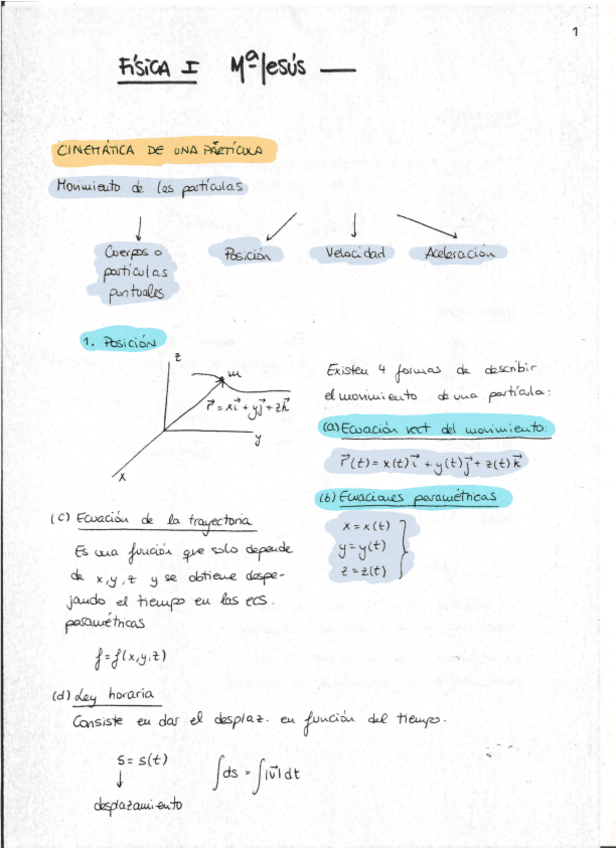 1
FÍSICA I Mª Jesús —
CINEMÁTICA DE UNA PARTÍCULA
Movimiento de las partículas
Cuerpos o
partículas
puntuales
Posición
Velocidad
Aceleración
1. Posición
z
m
r⃗ = xi⃗ + yj⃗ + zk⃗
y
x
Existen 4 formas de describir
el movimiento de una partícula:
(a) Ecuación vect del movimiento:
r⃗(t) = x(t) i⃗ + y(t) j⃗ + z(t) k⃗
(b) Ecuaciones paramétricas
x = x(t)
y = y(t)
z = z(t)
(c) Ecuación de la trayectoria
Es una función que solo depende
de x, y, z y se obtiene despe-
jando el tiempo en las ecs.
paramétricas
f = f(x, y, z)
(d) Ley horaria
Consiste en dar el desplaz. en función del tiempo.
s = s(t)
desplazamiento
∫ds = ∫|v⃗| dt